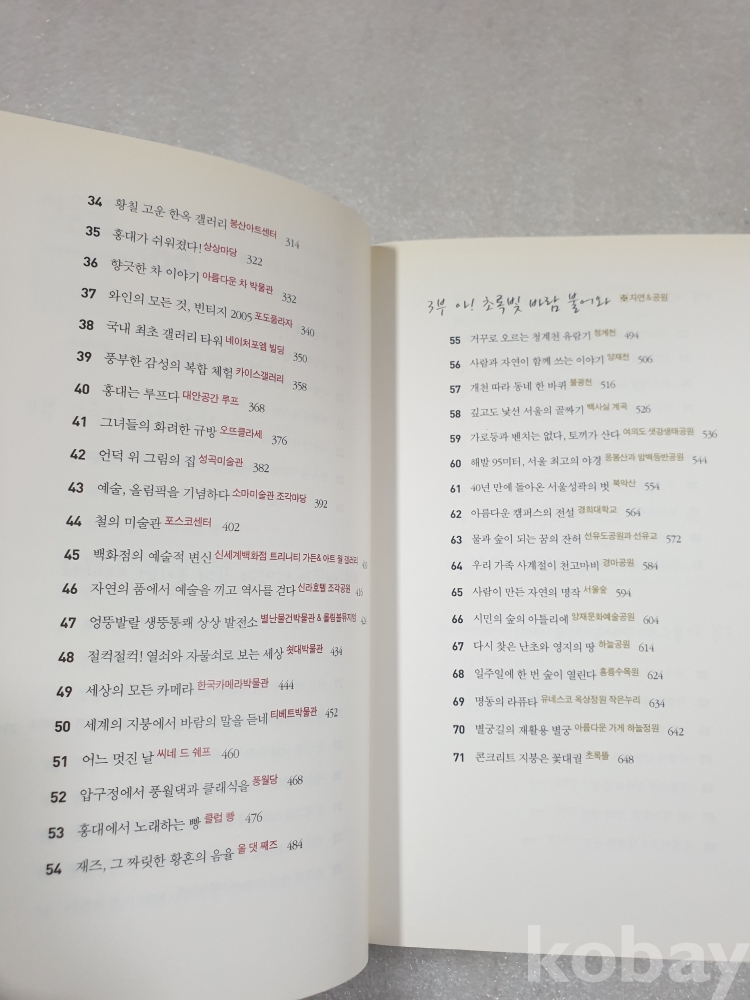 34 황칠 고운 한옥 갤러리 봉산아트센터 314
35 홍대가 쉬워졌다! 상상마당 322
36 향긋한 차 이야기 아름다운 차 박물관 332
37 와인의 모든 것, 빈티지 2005 포도플라자 340
38 국내 최초 갤러리 타워 네이처포엠 빌딩 350
39 풍부한 감성의 복합 체험 카이스갤러리 358
40 홍대는 루프다 대안공간 루프 368
41 그녀들의 화려한 규방 오뜨클라세 376
42 언덕 위 그림의 집 성곡미술관 382
43 예술, 올림픽을 기념하다 소마미술관 조각마당 392
44 철의 미술관 포스코센터 402
45 백화점의 예술적 변신 신세계백화점 트리니티 가든& 아트 월 갤러리
46 자연의 품에서 예술을 끼고 역사를 걷다 신라호텔 조각공원
47 엉뚱발랄 생뚱통쾌 상상 발전소 별난물건박물관 & 롤링볼뮤지엄
48 절컥절컥! 열쇠와 자물쇠로 보는 세상 쇳대박물관 434
49 세상의 모든 카메라 한국카메라박물관 444
50 세계의 지붕에서 바람의 말을 듣네 티베트박물관 452
51 어느 멋진 날 씨네 드 쉐프 460
52 압구정에서 풍월댁과 클래식을 풍월당 468
53 홍대에서 노래하는 빵 클럽 빵 476
54 재즈, 그 짜릿한 황혼의 음율 올 댓 째즈 484
3부 아! 초록빛 바람 불어와 자연&공원
55 거꾸로 오르는 청계천 유람기 청계천 494
56 사람과 자연이 함께 쓰는 이야기 양재천 506
57 개천 따라 동네 한 바퀴 불광천 516
58 깊고도 낯선 서울의 골짜기 백사실 계곡 526
59 가로등과 벤치는 없다, 토끼가 산다 여의도 샛강생태공원 536
60 해발 95미터, 서울 최고의 야경 응봉산과 암벽등반공원 544
61 40년 만에 돌아온 서울성곽의 벗 북악산 554
62 아름다운 캠퍼스의 전설 경희대학교 564
63 물과 숲이 되는 꿈의 잔허 선유도공원과 선유교 572
64 우리 가족 사계절이 천고마비 경마공원 584
65 사람이 만든 자연의 명작 서울숲 594
66 시민의 숲의 아틀리에 양재문화예술공원 604
67 다시 찾은 난초와 영지의 땅 하늘공원 614
68 일주일에 한 번 숲이 열린다 홍릉수목원 624
69 명동의 라퓨타 유네스코 옥상정원 작은누리 634
70 별궁길의 재활용 별궁 아름다운 가게 하늘정원 642
71 콘크리트 지붕은 꽃대궐 초록뜰 648
kobay